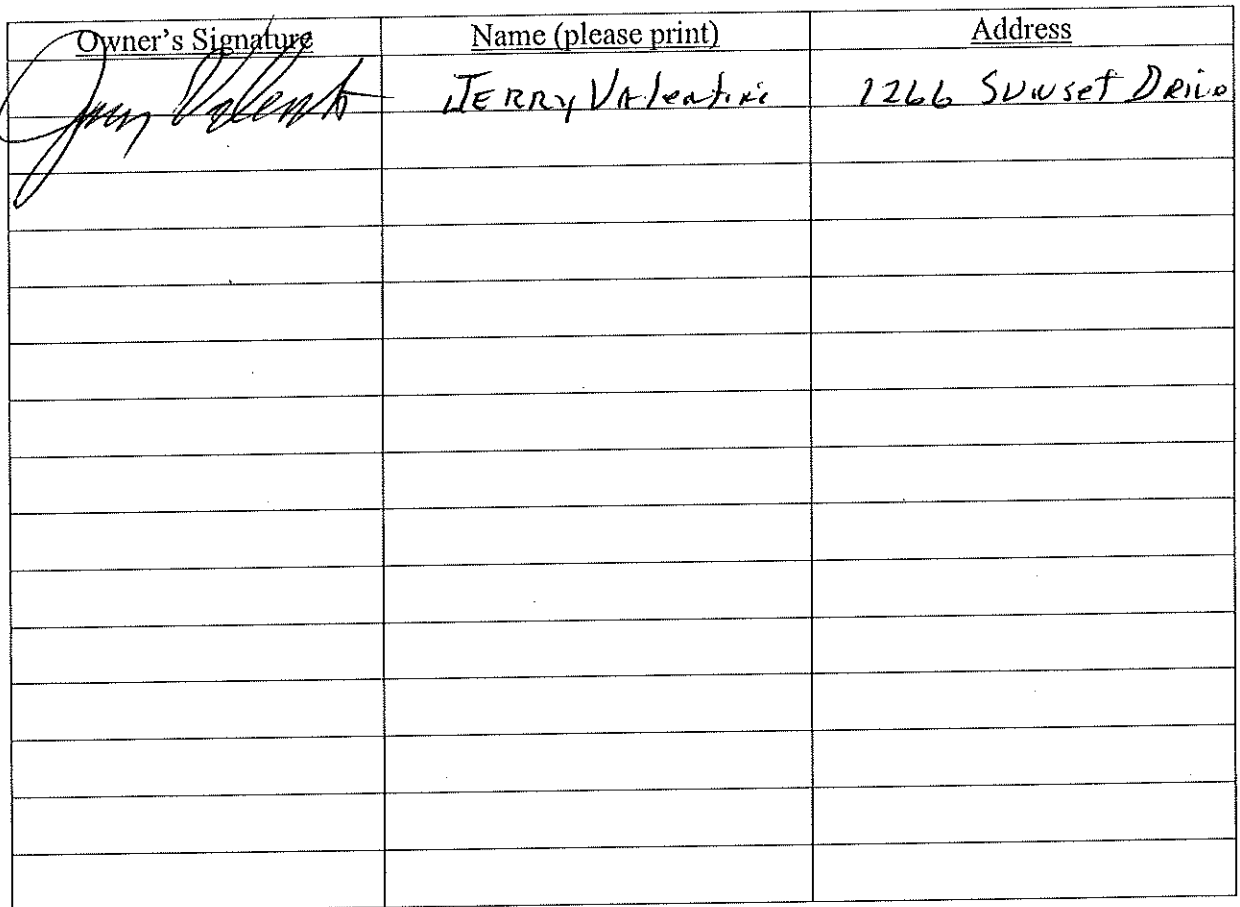 Owner's Signature Name (please print) Address
Jerry Valentine JERRY VAlentine 1266 Sunset Drive